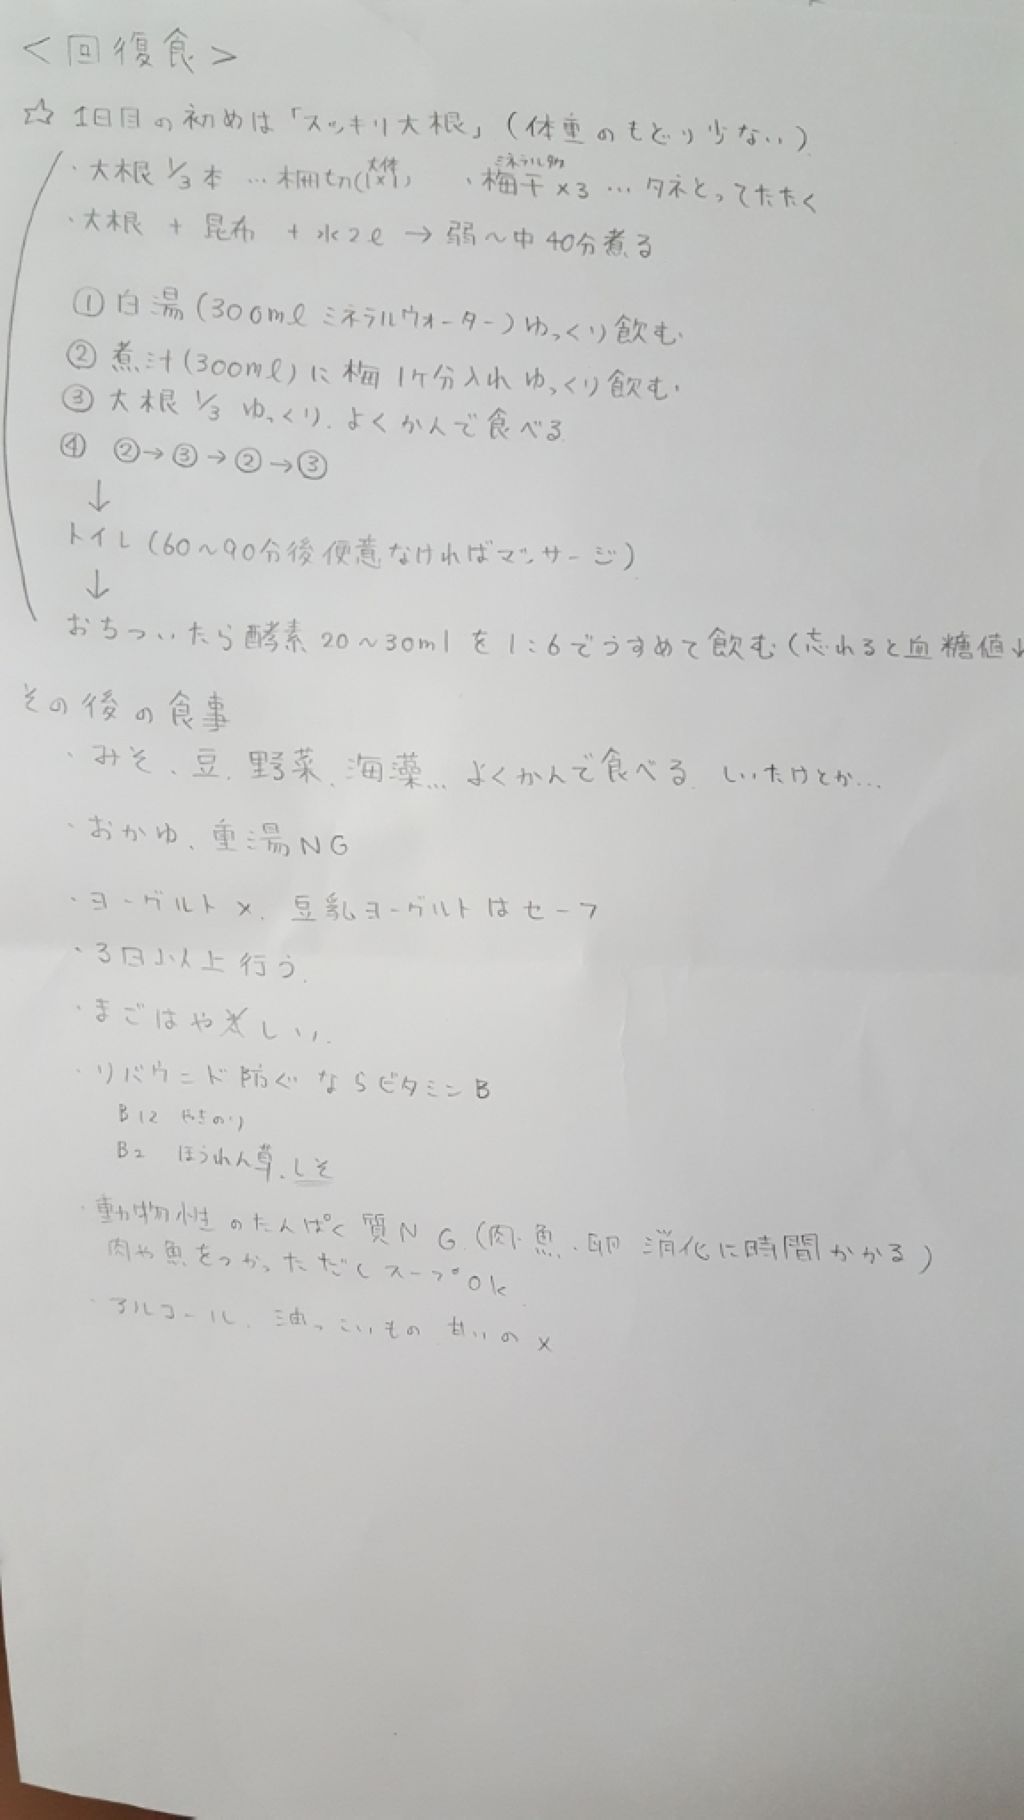 ＜回復食＞
☆ 1日目の初めは「スッキリ大根」(体重のもどり少ない)
・大根 1/3 本 … 柵切(1×1) 大体 ・梅干×3 … タネとってたたく
ミネラル多め
・大根 + 昆布 + 水2ℓ → 弱〜中 40分煮る
① 白湯(300mℓ ミネラルウォーター)ゆっくり飲む.
② 煮汁(300mℓ)に梅1ケ分入れ ゆっくり飲む.
③ 大根 1/3 ゆっくり. よくかんで食べる
④ ②→③→②→③
↓
トイレ(60〜90分後便意なければマッサージ)
↓
おちついたら酵素 20〜30ml を 1:6でうすめて飲む(忘れると血糖値↓
その後の食事
・みそ、豆、野菜、海藻… よくかんで食べる しいたけとか…
・おかゆ、重湯NG
・ヨーグルト×. 豆乳ヨーグルトはセーフ
・3日以上行う.
・まごはやしい.
・リバウンド防ぐならビタミンB
B12 やきのり
B2 ほうれん草、しそ
・動物性のたんぱく質NG.(肉・魚・卵 消化に時間かかる)
肉や魚をつかっただしスープOk
・アルコール、油っこいもの 甘いの ×